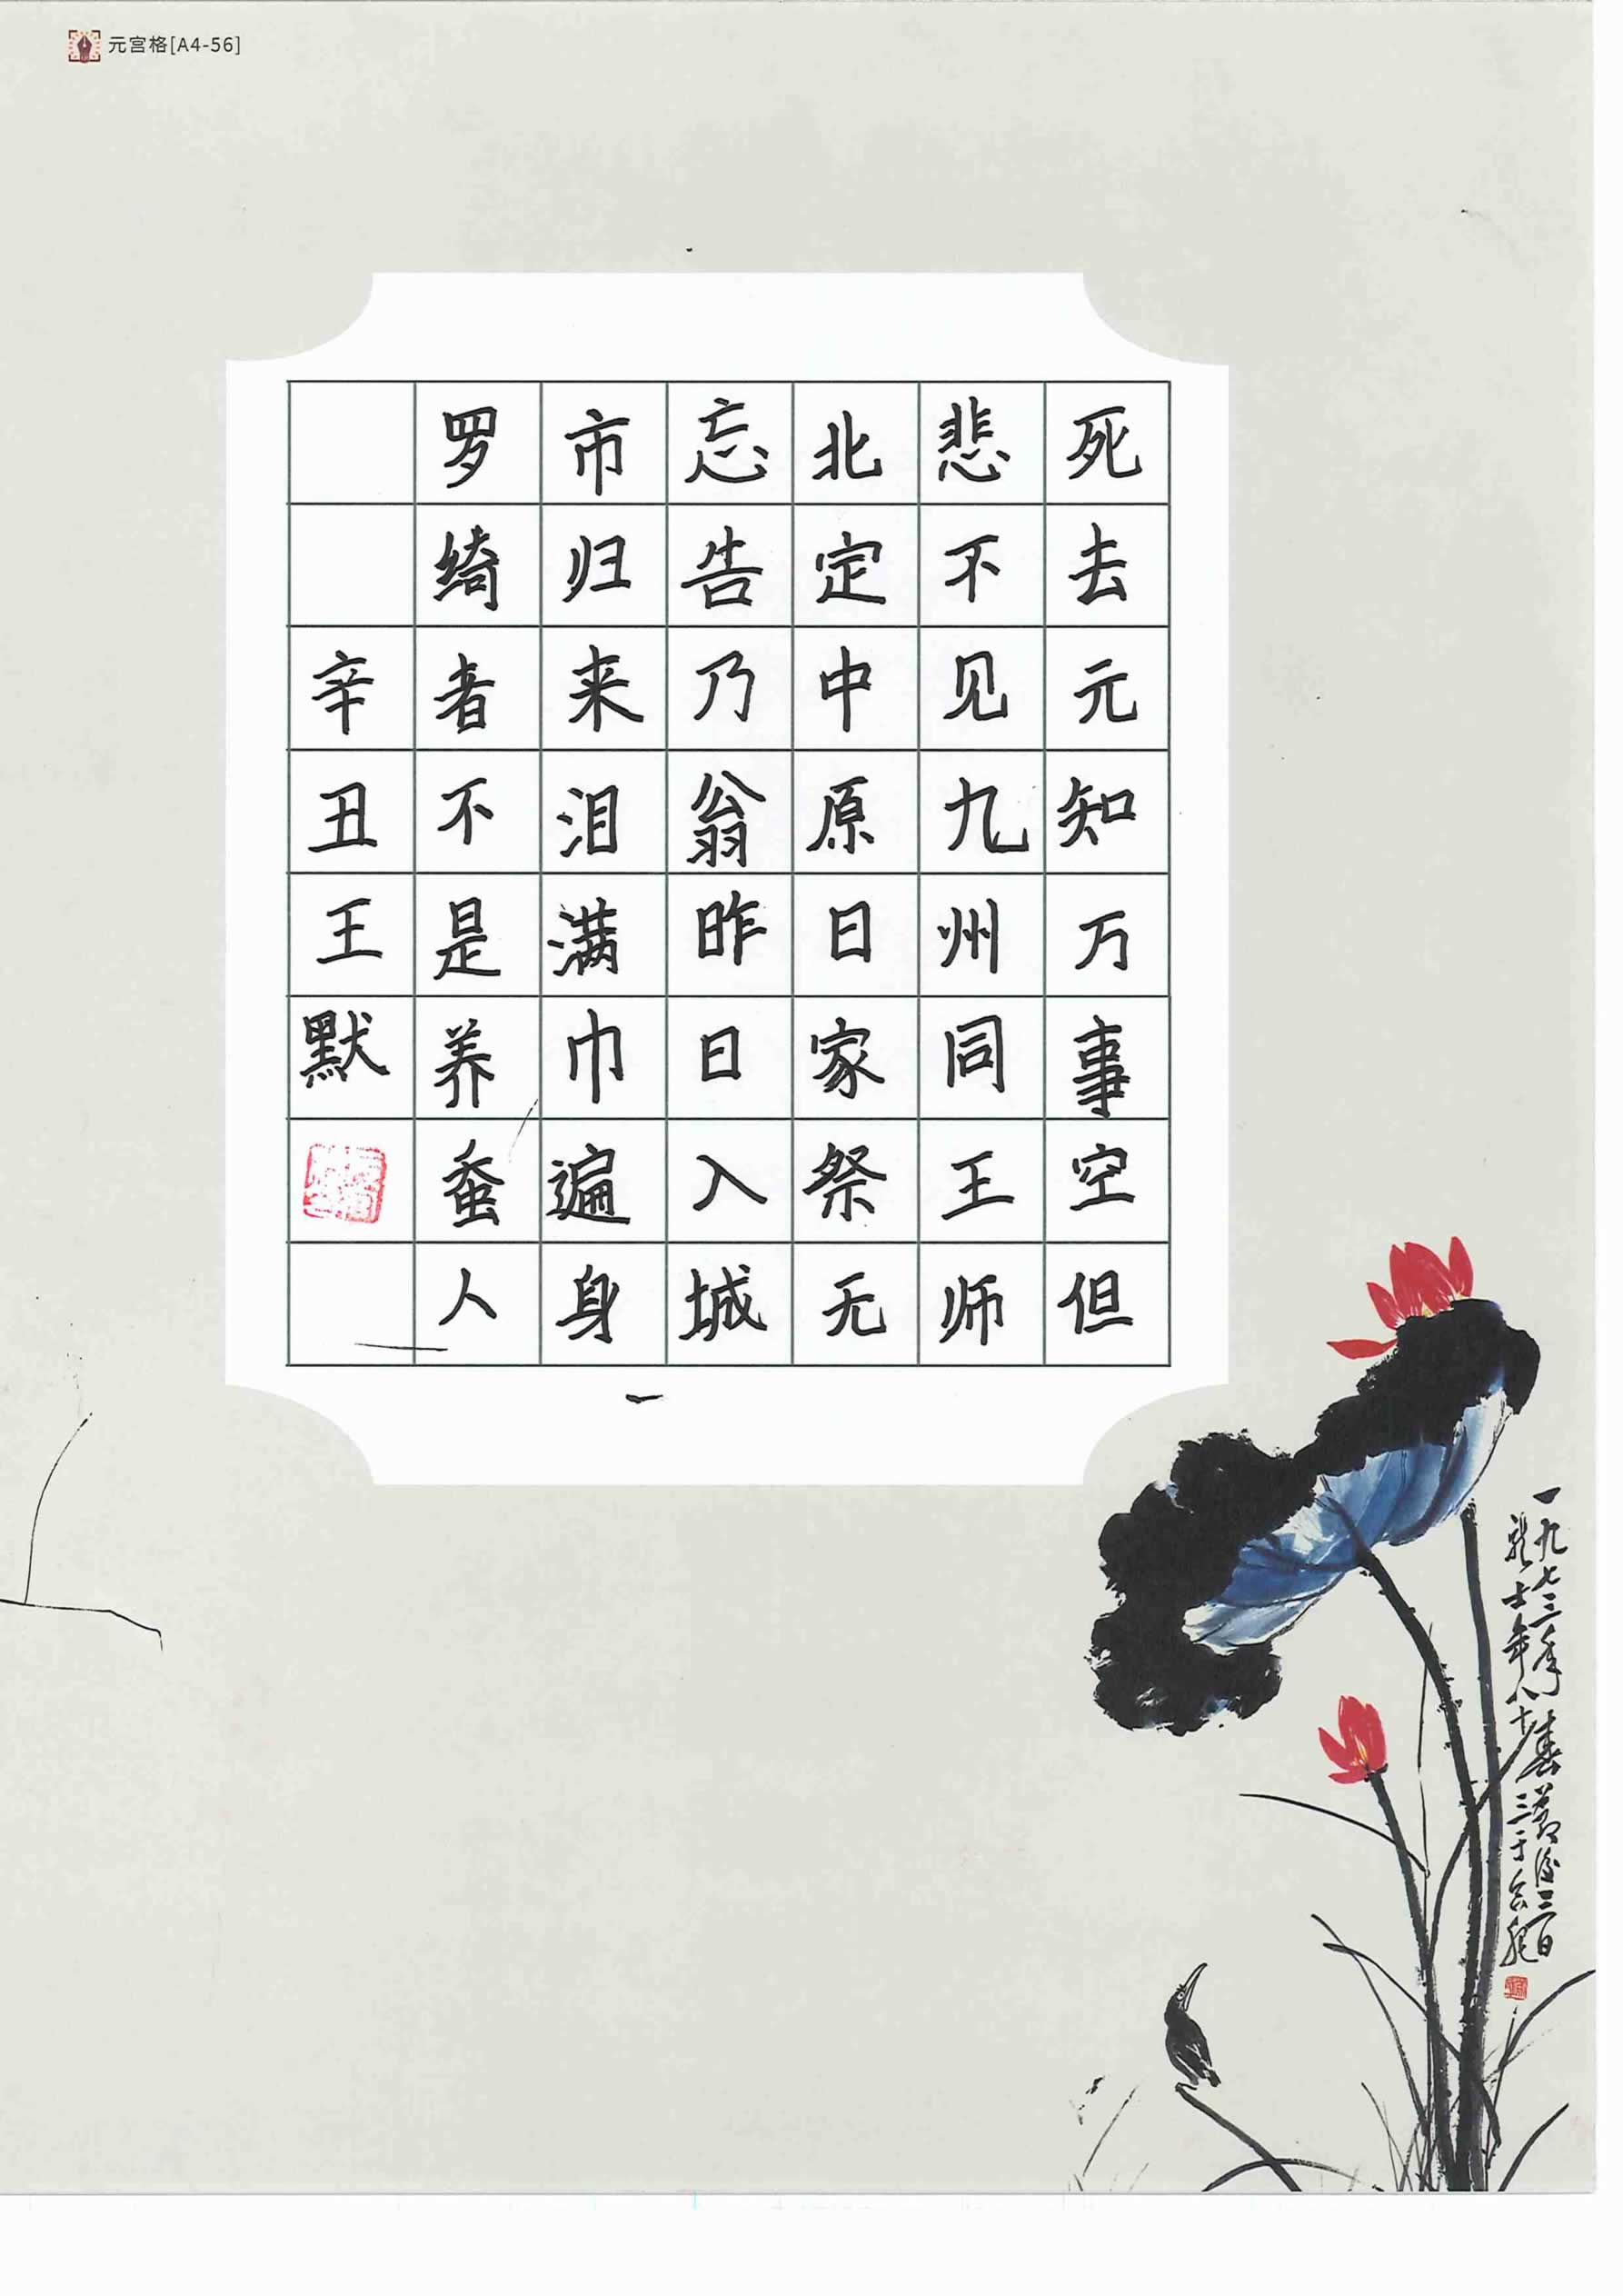 元宫格[A4-56]
死去元知万事空但
悲不见九州同王师
北定中原日家祭无
忘告乃翁昨日日入城
市归来泪满巾遍身
罗绮者不是养蚕人
辛丑王默
一九七三年